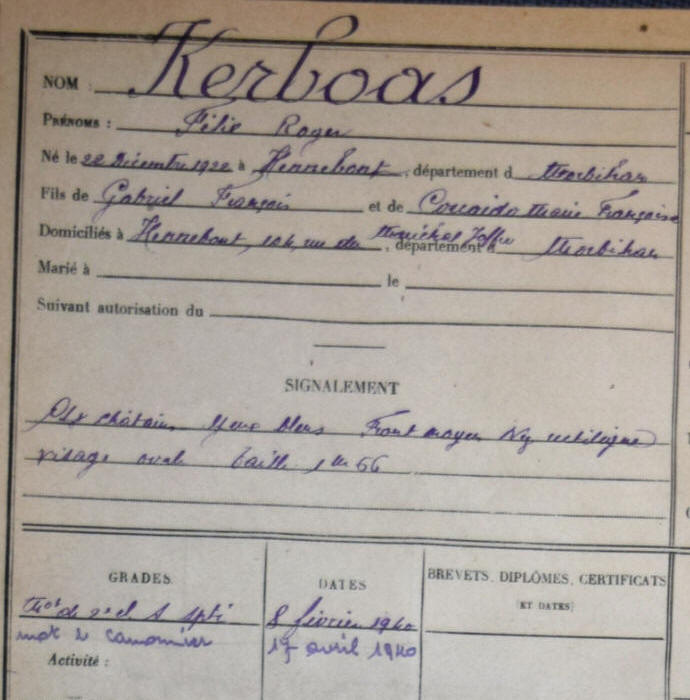 NOM : Kerboas
PRÉNOMS : Félix Roger
Né le 22 Décembre 1922 à Hennebont, département d Morbihan
Fils de Gabriel François et de Marie Françoise
Domiciliés à Hennebont, 104, rue du Maréchal Joffre, département d Morbihan
Marié à le
Suivant autorisation du
SIGNALEMENT
châtain Yeux bleus Front moyen Nez rectiligne
visage ovale taille 1m 66
GRADES DATES BREVETS, DIPLÔMES, CERTIFICATS
(ET DATES)
Mot de 2e cl 8 février 1940
mot canonnier 17 avril 1940
Activité :